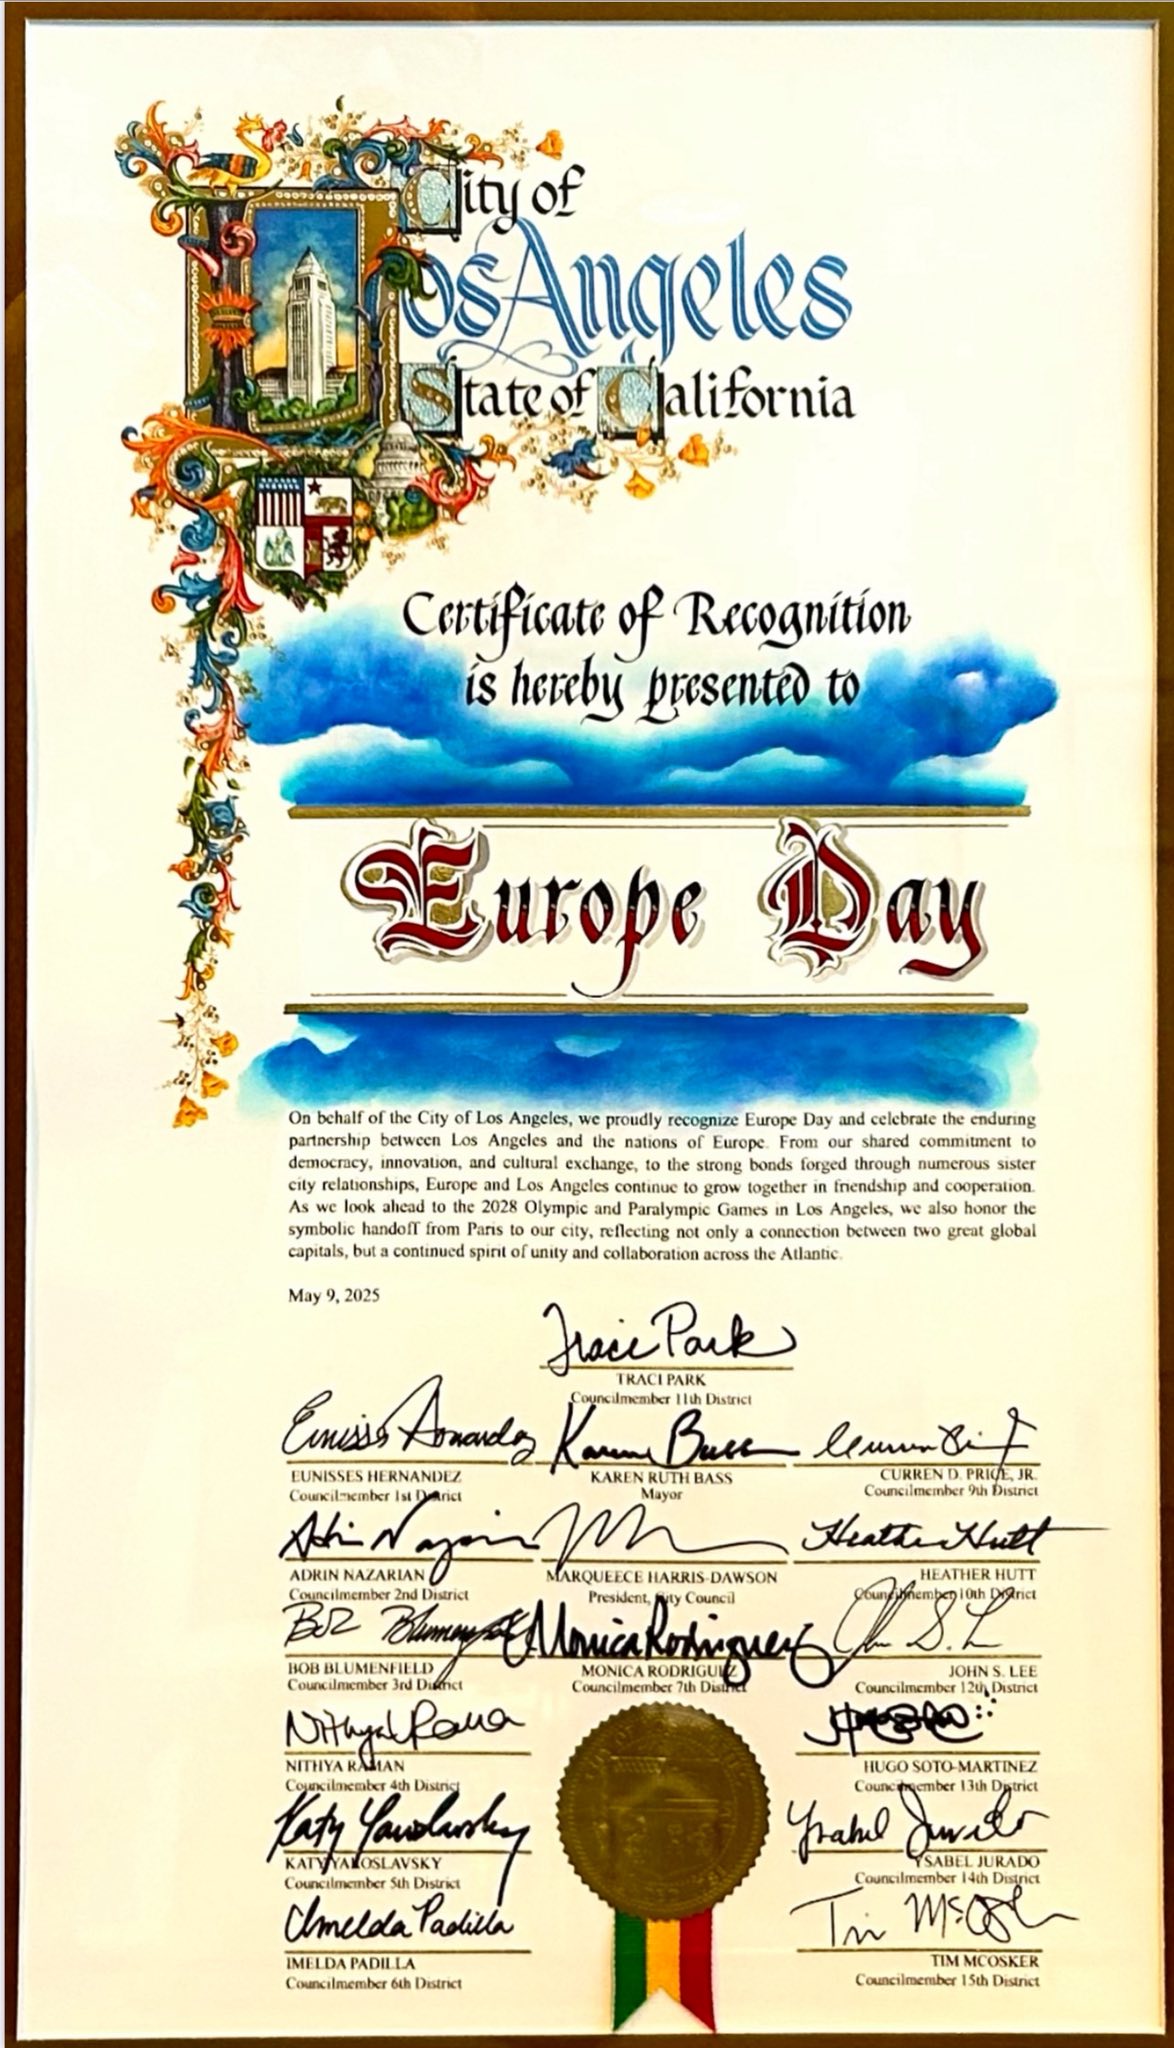 City of
Los Angeles
State of California
Certificate of Recognition
is hereby presented to
Europe Day
On behalf of the City of Los Angeles, we proudly recognize Europe Day and celebrate the enduring
partnership between Los Angeles and the nations of Europe. From our shared commitment to
democracy, innovation, and cultural exchange, to the strong bonds forged through numerous sister
city relationships, Europe and Los Angeles continue to grow together in friendship and cooperation.
As we look ahead to the 2028 Olympic and Paralympic Games in Los Angeles, we also honor the
symbolic handoff from Paris to our city, reflecting not only a connection between two great global
capitals, but a continued spirit of unity and collaboration across the Atlantic.
May 9, 2025
Traci Park
TRACI PARK
Councilmember 11th District
Karen Bass
EUNISSES HERNANDEZ
Councilmember 1st District
KAREN RUTH BASS
Mayor
CURREN D. PRICE, JR.
Councilmember 9th District
Heather Hutt
ADRIN NAZARIAN
Councilmember 2nd District
MARQUEECE HARRIS-DAWSON
President, City Council
HEATHER HUTT
Councilmember 10th District
Bob Blumenfield
Monica Rodriguez
BOB BLUMENFIELD
Councilmember 3rd District
MONICA RODRIGUEZ
Councilmember 7th District
JOHN S. LEE
Councilmember 12th District
Nithya Raman
NITHYA RAMAN
Councilmember 4th District
HUGO SOTO-MARTINEZ
Councilmember 13th District
Katy Yaroslavsky
Ysabel Jurado
KATY YAROSLAVSKY
Councilmember 5th District
YSABEL JURADO
Councilmember 14th District
Imelda Padilla
Tim McOsker
IMELDA PADILLA
Councilmember 6th District
TIM MCOSKER
Councilmember 15th District